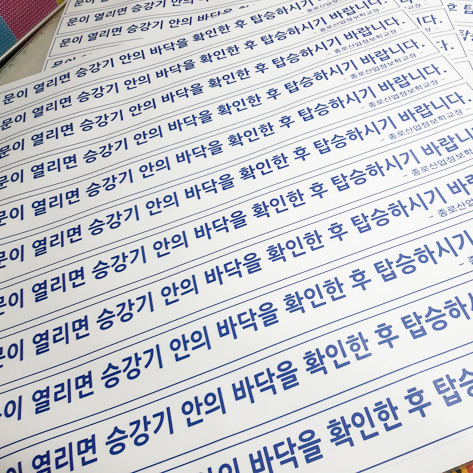 문이 열리면 승강기 안의 바닥을 확인한
문이 열리면 승강기 안의 바닥을 확인한 후 탑승하시기 바랍니다.
- 종로산업정보학교장
문이 열리면 승강기 안의 바닥을 확인한 후 탑승하시기 바랍니다.
- 종로산업정보학교장
문이 열리면 승강기 안의 바닥을 확인한 후 탑승하시기 바랍니다.
- 종로산업정보학교장
문이 열리면 승강기 안의 바닥을 확인한 후 탑승하시기 바랍니다.
- 종로산업정보학교장
문이 열리면 승강기 안의 바닥을 확인한 후 탑승하시기 바랍니다.
- 종로산업정보학교장
문이 열리면 승강기 안의 바닥을 확인한 후 탑승하시기 바랍니다.
- 종로산업정
문이 열리면 승강기 안의 바닥을 확인한 후 탑승하시기 바랍
- 종로
문이 열리면 승강기 안의 바닥을 확인한 후 탑승하시기
문이 열리면 승강기 안의 바닥을 확인한 후 탑승하시
문이 열리면 승강기 안의 바닥을 확인한 후 탑승
이 열리면 승강기 안의 바닥을 확인한 후 탑
안의 바닥을 확인한